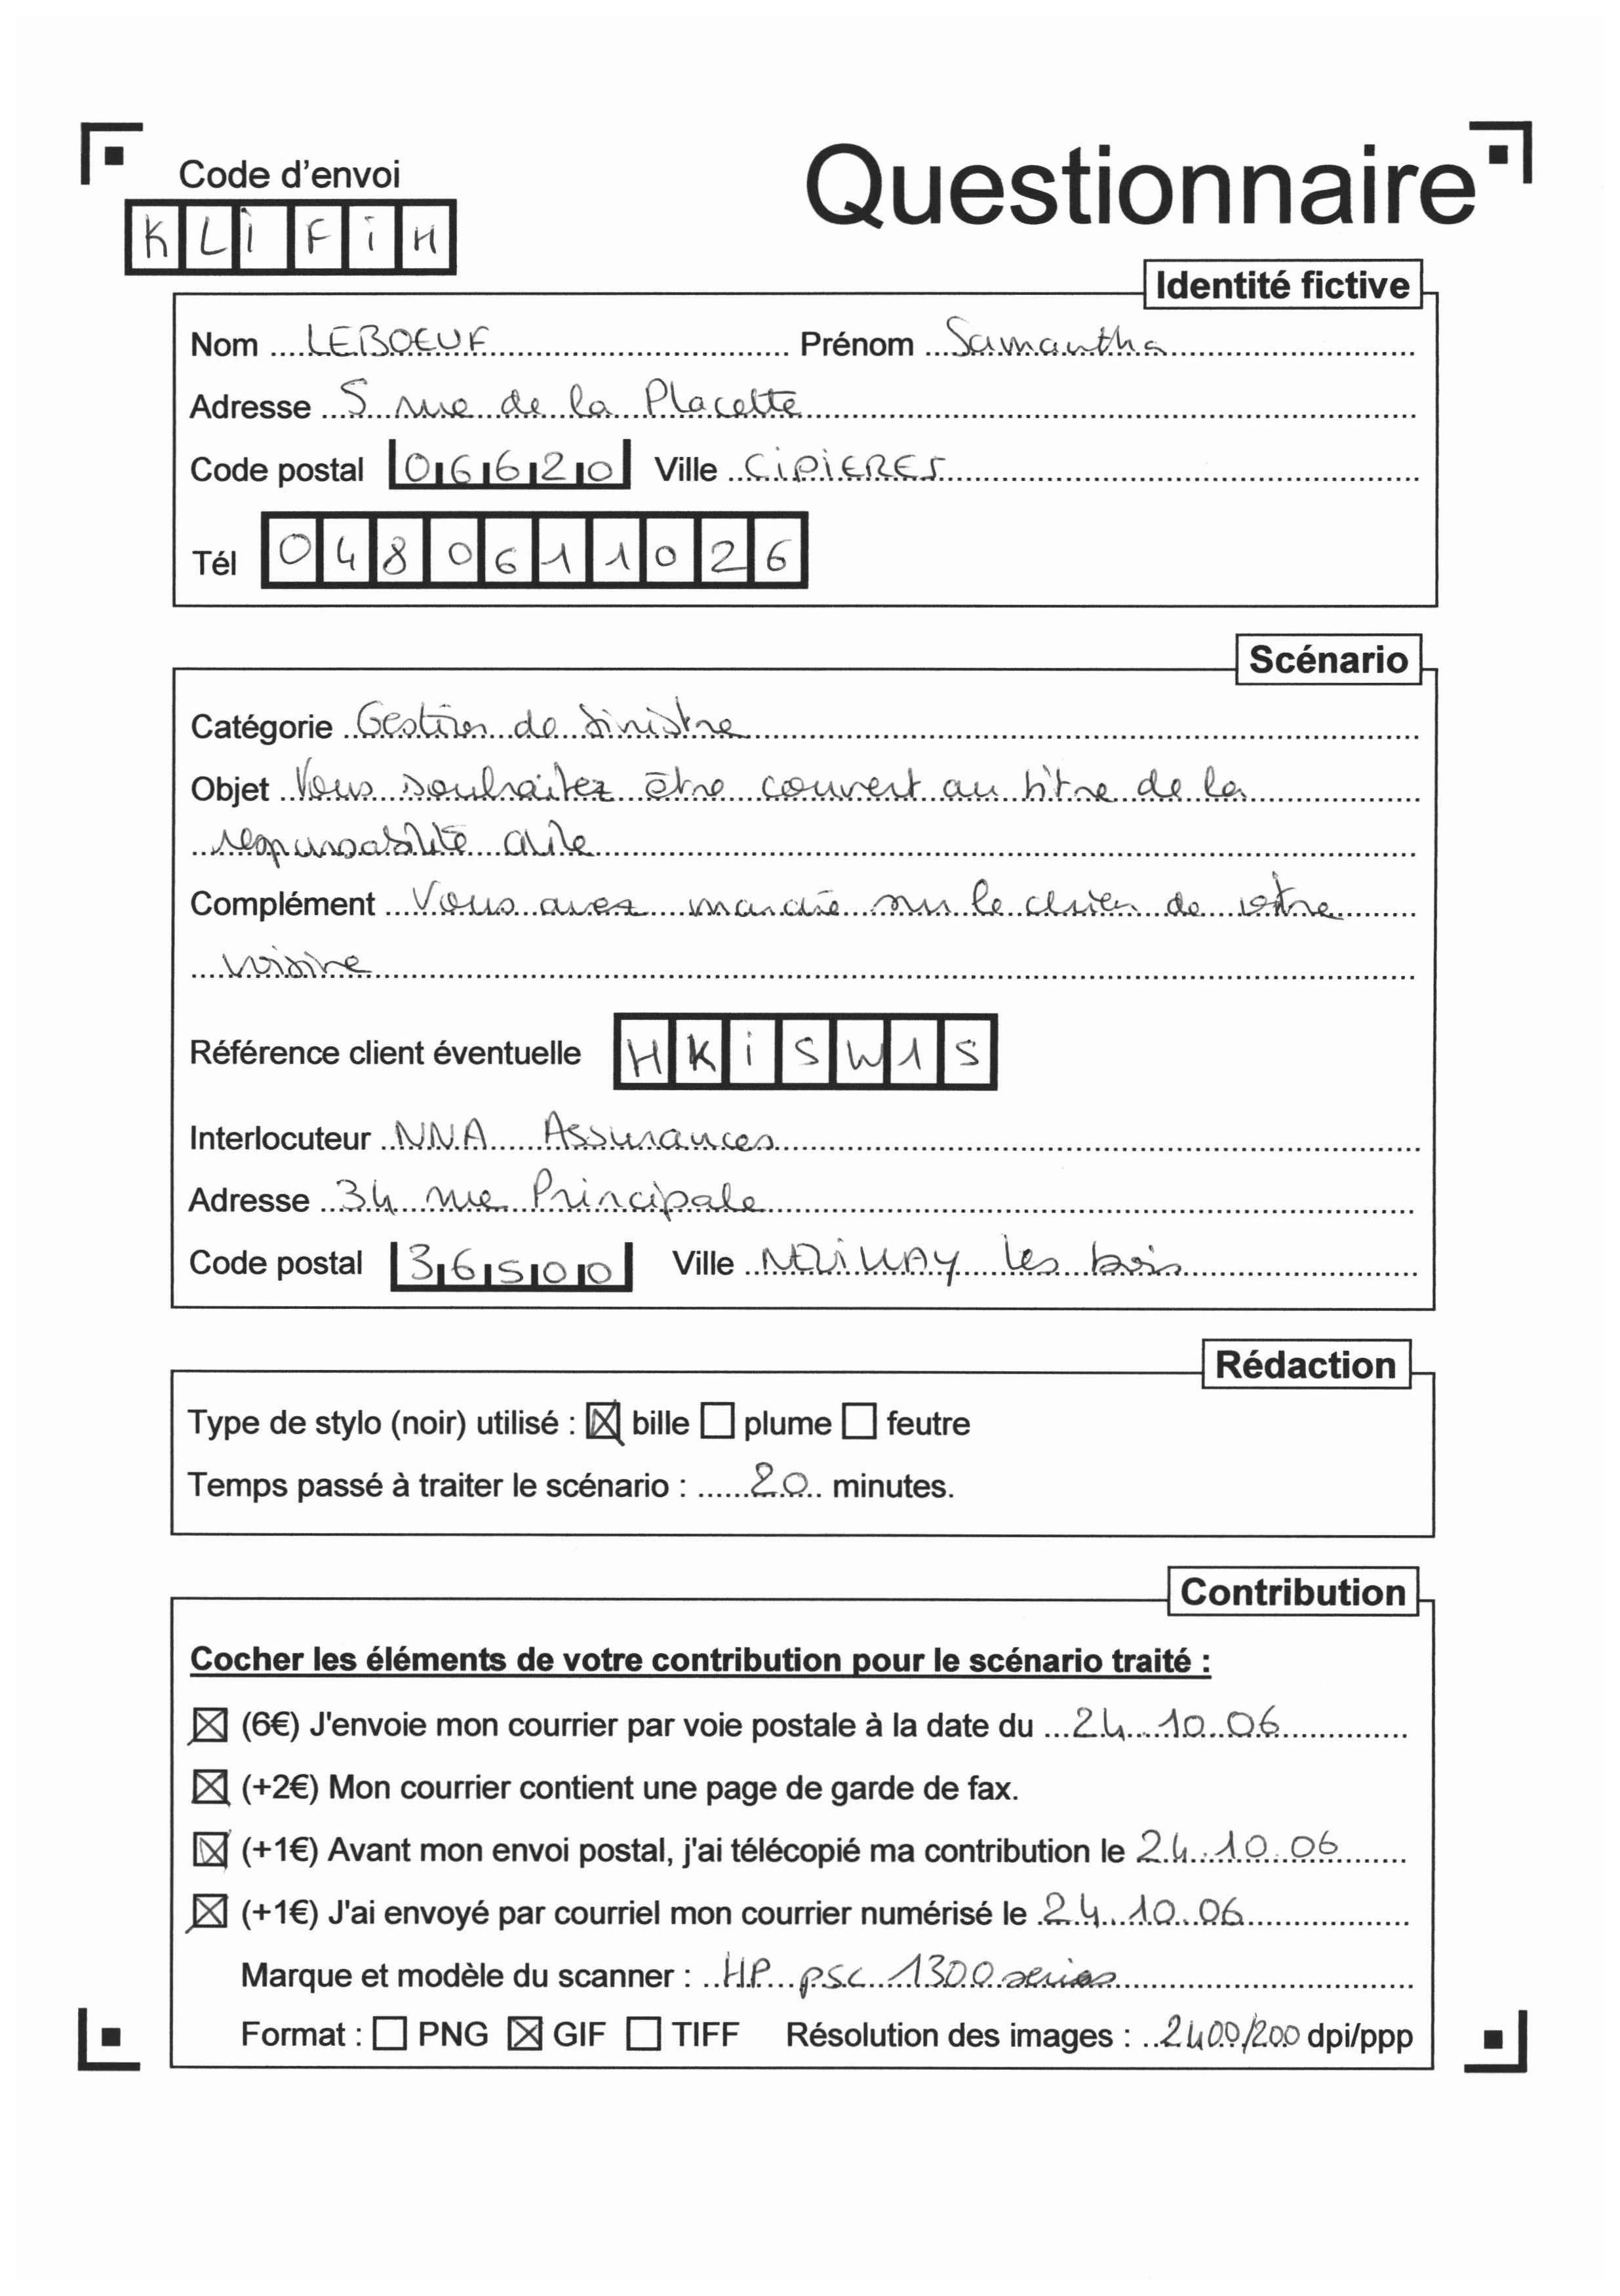 Code d'envoi
Questionnaire
K L i F i H
Identité fictive
Nom LEBOEUF Prénom Samantha
Adresse 5 rue de la Placette
Code postal 06620 Ville CiPiERES
Tél 0480611026
Scénario
Catégorie Gestion de Sinistre
Objet Vous souhaitez être couvert au titre de la
responsabilité civile
Complément Vous avez marché sur le chien de votre
voisine
Référence client éventuelle HKiSW1S
Interlocuteur NNA Assurances
Adresse 34 rue Principale
Code postal 36500 Ville les bois
Rédaction
Type de stylo (noir) utilisé : ☒ bille ☐ plume ☐ feutre
Temps passé à traiter le scénario : 20 minutes.
Contribution
Cocher les éléments de votre contribution pour le scénario traité :
☒ (6€) J'envoie mon courrier par voie postale à la date du 24.10.06
☒ (+2€) Mon courrier contient une page de garde de fax.
☒ (+1€) Avant mon envoi postal, j'ai télécopié ma contribution le 24.10.06
☒ (+1€) J'ai envoyé par courriel mon courrier numérisé le 24.10.06
Marque et modèle du scanner : HP psc 1300 series
Format : ☐ PNG ☒ GIF ☐ TIFF Résolution des images : 2400/200 dpi/ppp